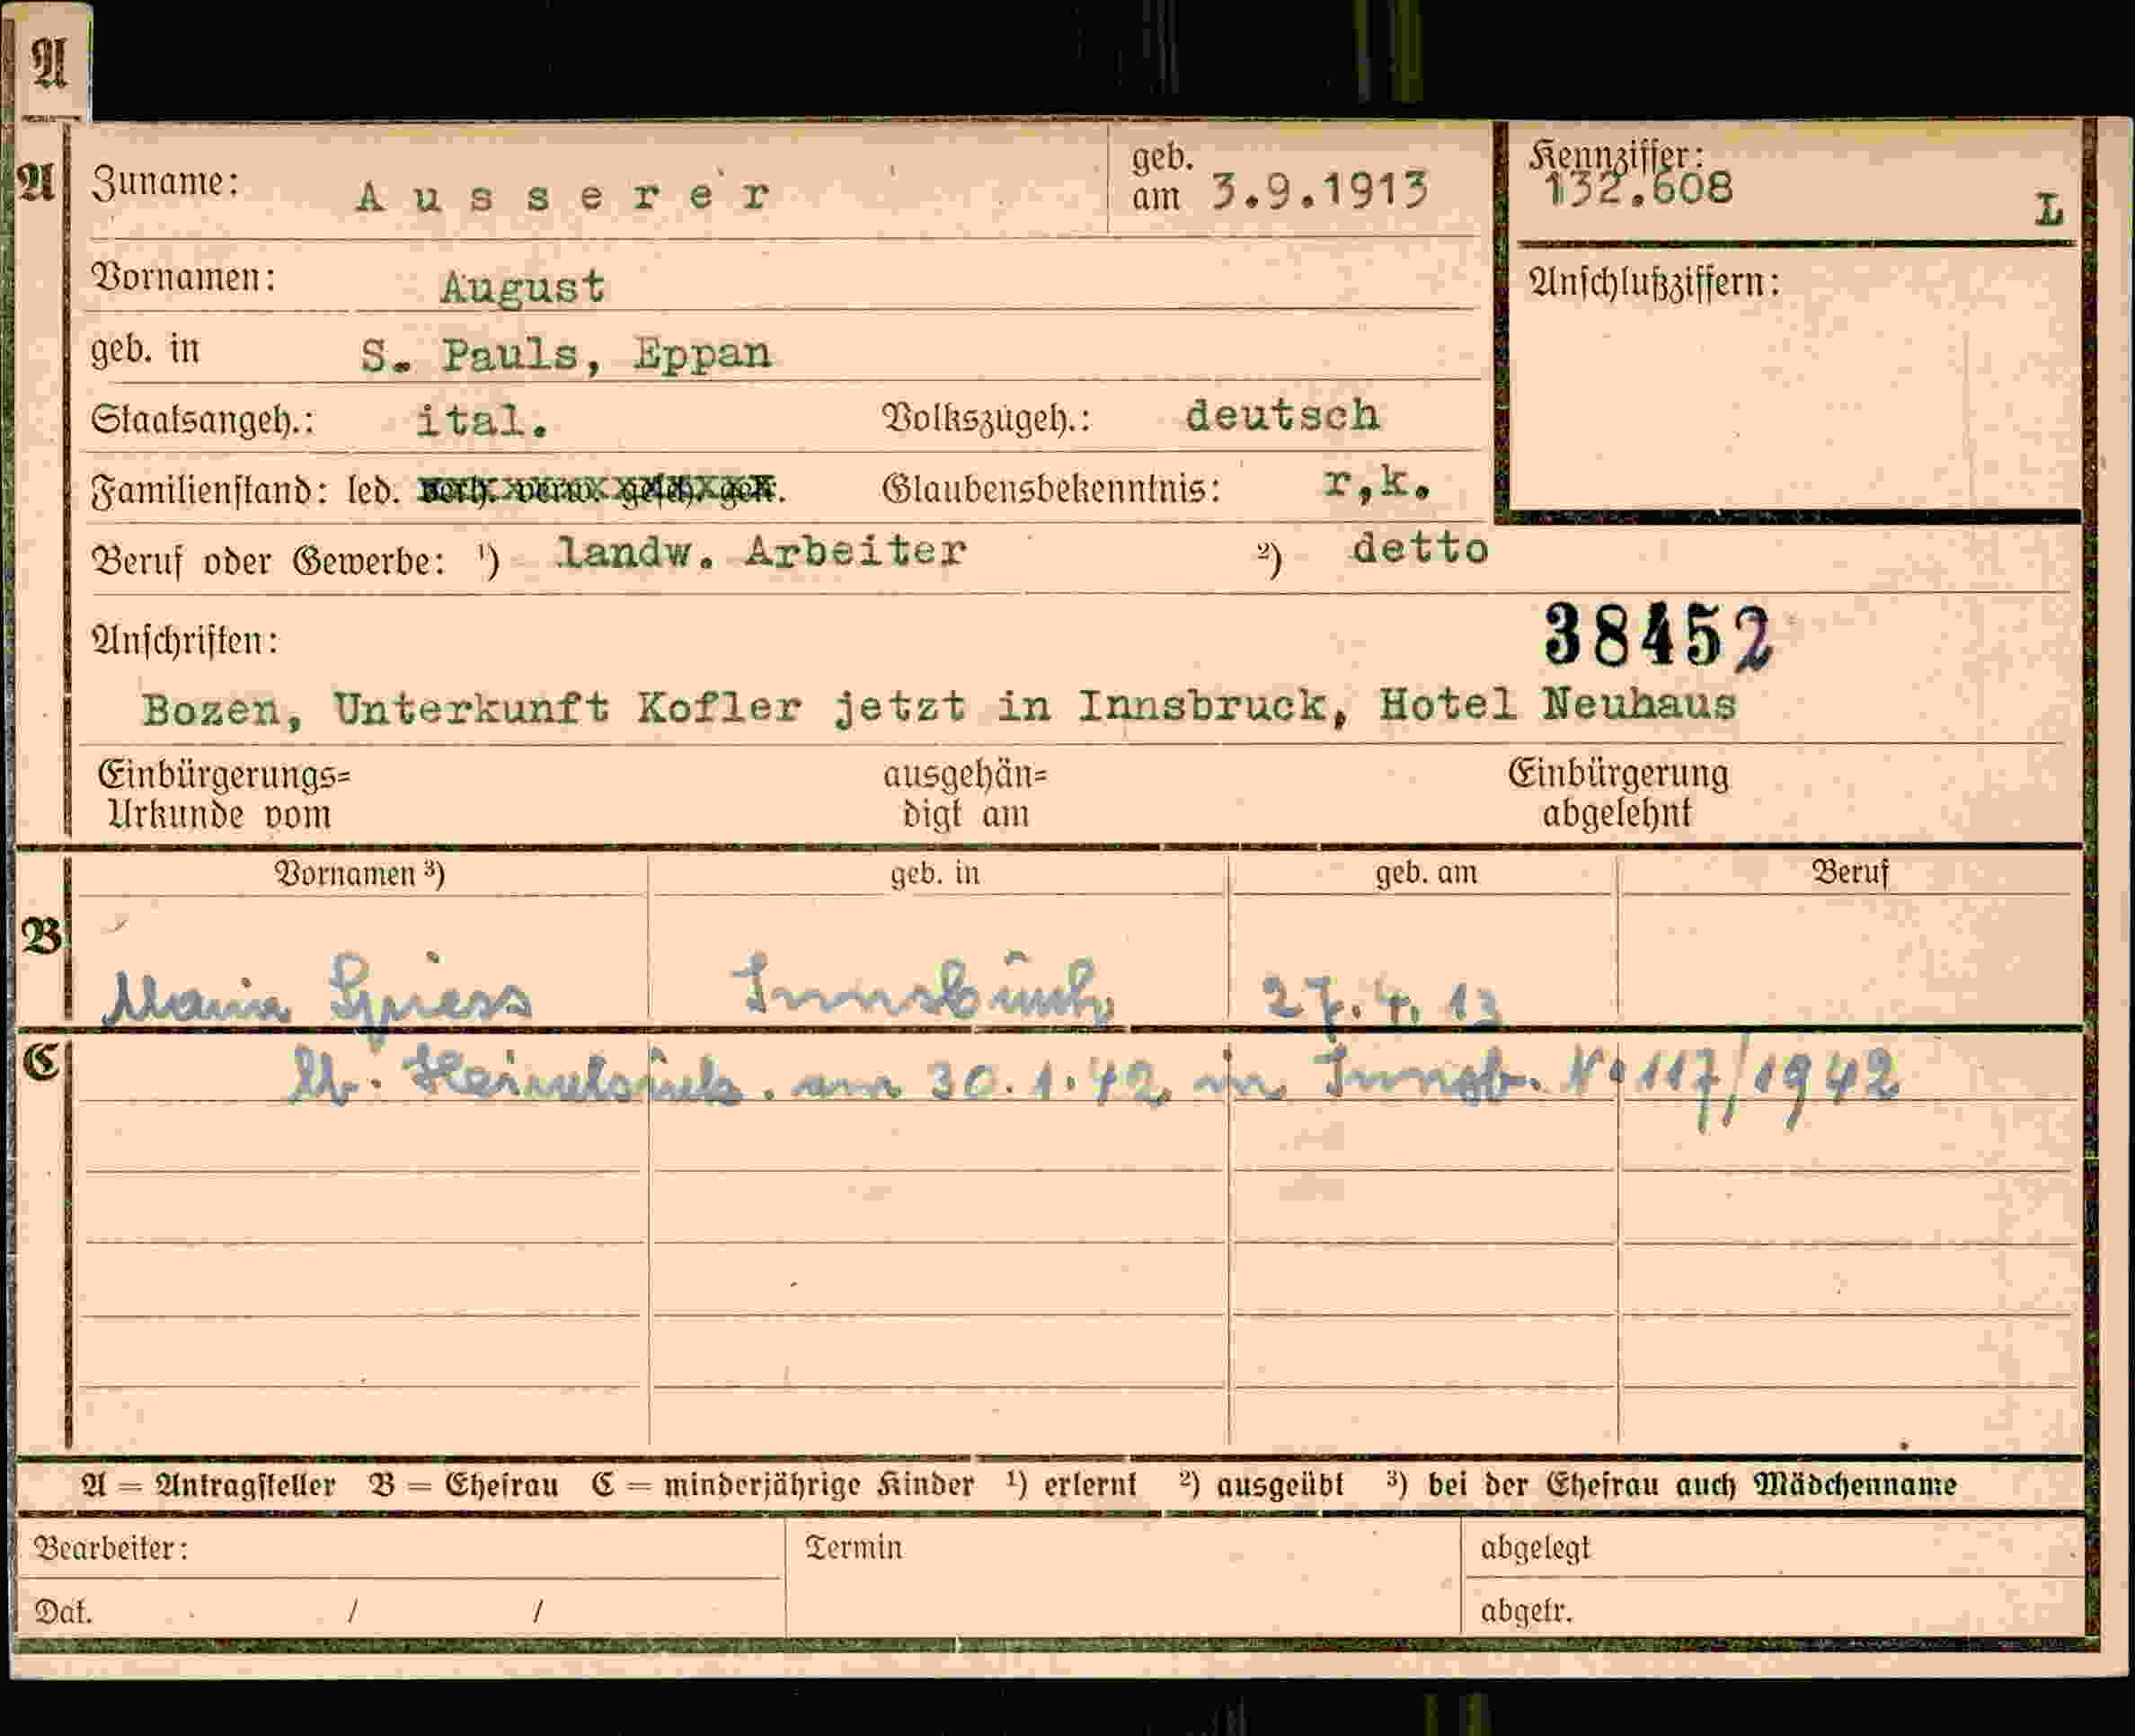 A
A
Zuname: Ausserer geb. am 3.9.1913 Kennziffer: 132.608 L
Vornamen: August Anschlußziffern:
geb. in S. Pauls, Eppan
Staatsangeh.: ital. Volkszugeh.: deutsch
Familienstand: led. verh. verw. gesch. getr. Glaubensbekenntnis: r,k.
Beruf oder Gewerbe: ¹) landw. Arbeiter ²) detto
Anschriften: 38452
Bozen, Unterkunft Kofler jetzt in Innsbruck, Hotel Neuhaus
Einbürgerungs= ausgehän= Einbürgerung
Urkunde vom digt am abgelehnt
Vornamen ³) geb. in geb. am Beruf
B
Maria Spiess Innsbruck 27.4.13
C
am 30.1.42 in Innsb. No 117/1942
A = Antragsteller B = Ehefrau C = minderjährige Kinder ¹) erlernt ²) ausgeübt ³) bei der Ehefrau auch Mädchenname
Bearbeiter: Termin abgelegt
Dat. / / abgetr.